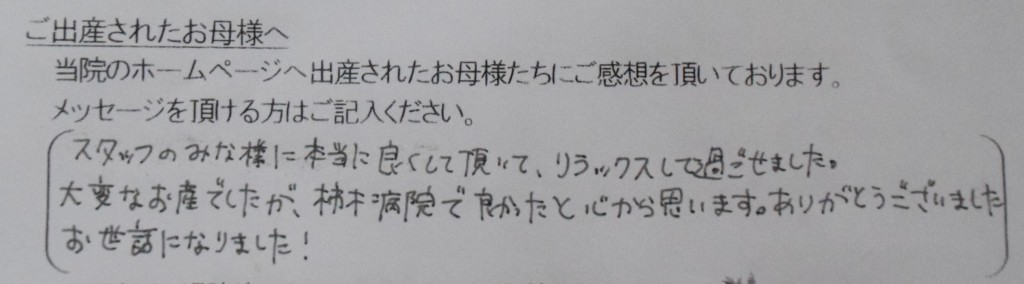 ご出産されたお母様へ
当院のホームページへ出産されたお母様たちにご感想を頂いております。
メッセージを頂ける方はご記入ください。
スタッフのみな様に本当に良くして頂いて、リラックスして過ごせました。
大変なお産でしたが、柿木病院で良かったと心から思います。ありがとうございました
お世話になりました!